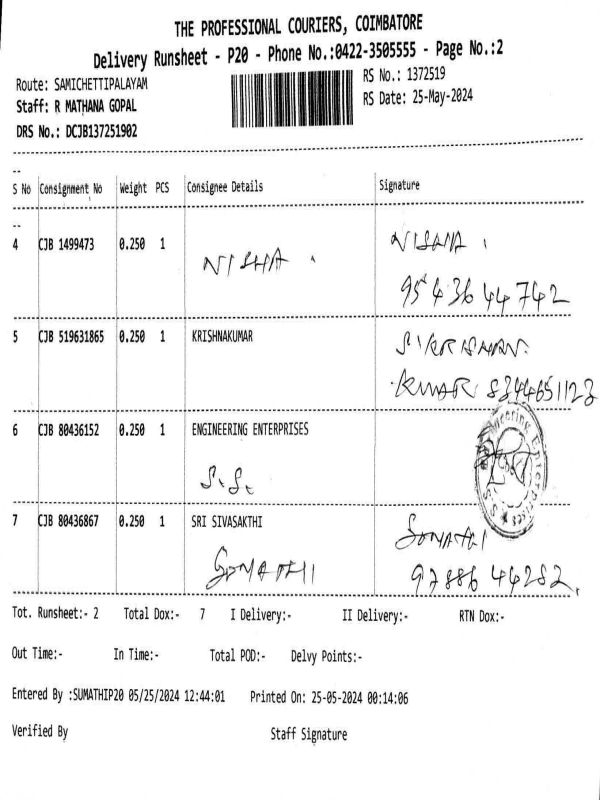 THE PROFESSIONAL COURIERS, COIMBATORE
Delivery Runsheet - P20 - Phone No.:0422-3505555 - Page No.:2
Route: SAMICHETTIPALAYAM
RS No.: 1372519
Staff: R MATHANA GOPAL
RS Date: 25-May-2024
DRS No.: DCJB137251902
--
S No Consignment No Weight PCS Consignee Details Signature
--
4 CJB 1499473 0.250 1 NISHA NISHA
95436 44742
5 CJB 519631865 0.250 1 KRISHNAKUMAR S. KRISHAN
KUMAR 8344651123
6 CJB 80436152 0.250 1 ENGINEERING ENTERPRISES
S.S. Engineering Enterprises
7 CJB 80436867 0.250 1 SRI SIVASAKTHI
GOMATHI GOMATHI
97886 44282
Tot. Runsheet:- 2 Total Dox:- 7 I Delivery:- II Delivery:- RTN Dox:-
Out Time:- In Time:- Total POD:- Delvy Points:-
Entered By :SUMATHIP20 05/25/2024 12:44:01 Printed On: 25-05-2024 00:14:06
Verified By Staff Signature